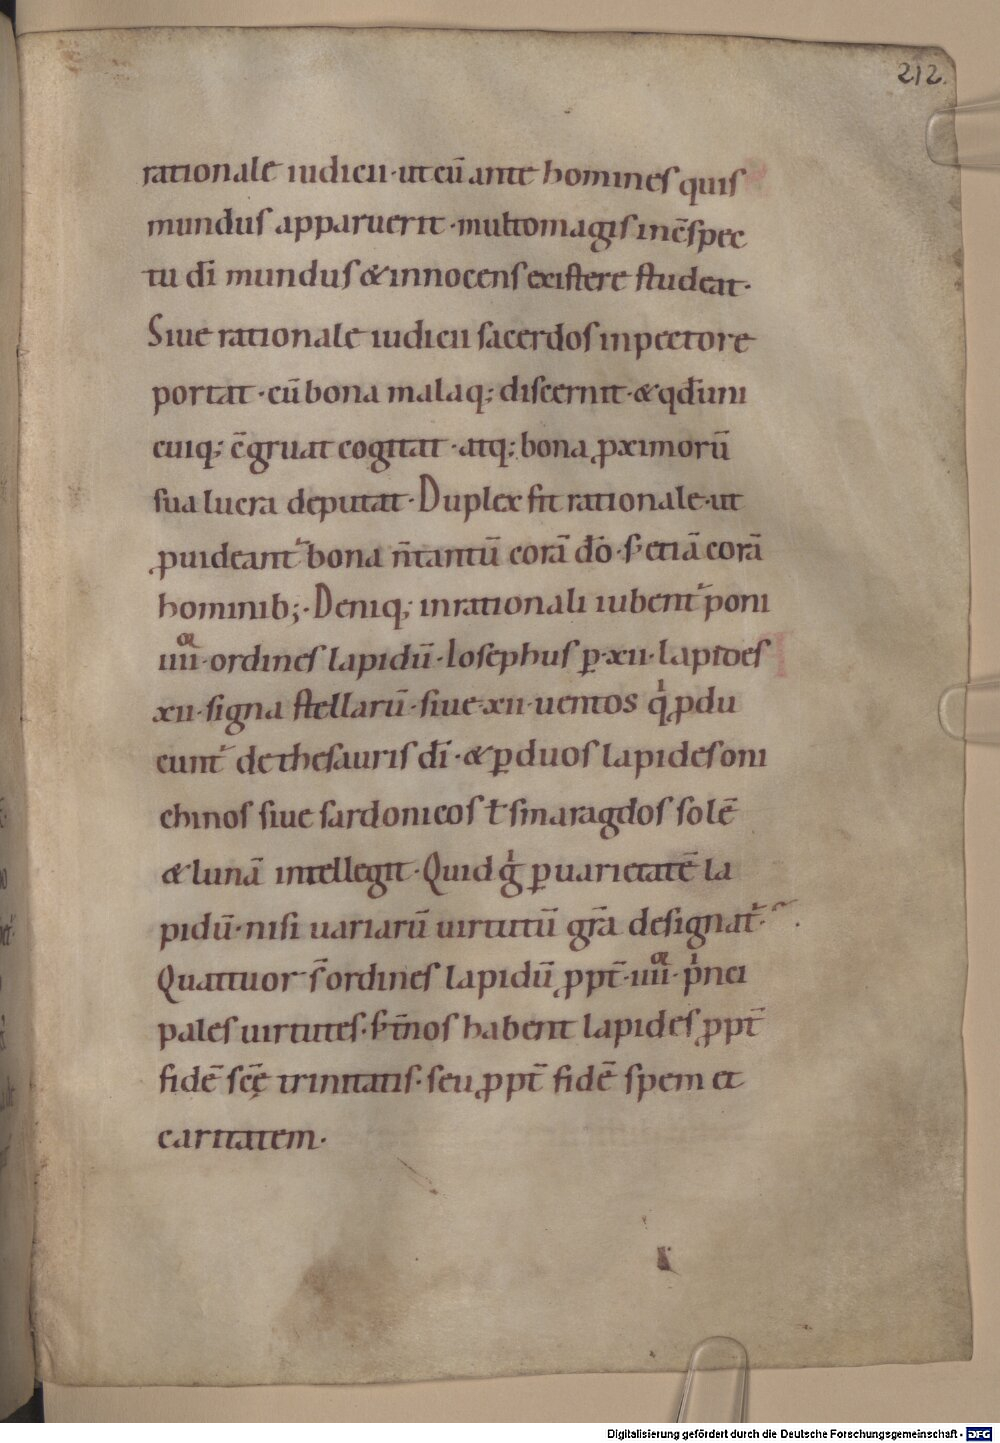 212.
rationale iudicii · ut cū ante homines quis
mundus apparuerit · multo magis in c̄spec
tu dī mundus & innocens existere studeat ·
Siue rationale iudicii sacerdos in pectore
portat · cū bona malaq; discernit · & qđ uni
cuiq; c̄gruat cogitat · atq; bona ꝓximorū
sua lucra deputat · Duplex fit rationale · ut
ꝓuideant᷑ bona n̄ tantū corā dō · s; etiā corā
hominib; · Deniq; in rationali iubent᷑ poni
iiii · ordines lapidū · Iosephus ꝑ · xii · lapides
xii · signa stellarū · siue · xii · uentos qͥ ꝓdu
cunt᷑ de thesauris dī · & ꝑ duos lapides oni
chinos siue sardonicos ł smaragdos solē
& lunā intellegit · Quid gͥ ꝑ uarietatē la
pidū · nisi uariarū uirtutū gr̄a designat᷑ ·
Quattuor s̄ ordines lapidū ꝓpt̄ · iiii · pͥnci
pales uirtutes · s; t̄nos habent lapides ꝓpt̄
fidē sc̄ę trinitatis · seu ꝓpt̄ fidē spem et
caritatem ·
Digitalisierung gefördert durch die Deutsche Forschungsgemeinschaft - DFG